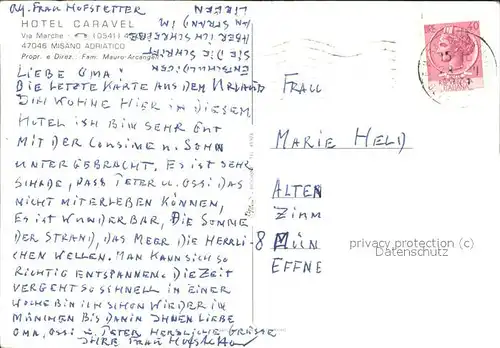 Abs. Frau Hofstetter
HOTEL CARAVEL
Via Marche - (0541)
47046 MISANO ADRIATICO
Propr. e Direz.: Fam. Mauro-Arcangeli
LIEBE OMA!
DIE LETZTE KARTE AUS DEM URLAUB
ICH WOHNE HIER IN DIESEM
HOTEL ICH BIN SEHR GUT
MIT DER COUSINE U. SOHN
UNTERGEBRACHT. ES IST SEHR
SCHADE, DASS PETER U. OSSI DAS
NICHT MITERLEBEN KÖNNEN,
ES IST WUNDERBAR, DIE SONNE
DER STRAND, DAS MEER DIE HERRLI-
CHEN WELLEN. MAN KANN SICH SO
RICHTIG ENTSPANNEN. DIE ZEIT
VERGEHT SO SCHNELL IN EINER
WOCHE BIN ICH SCHON WIEDER IN
MÜNCHEN BIS DAHIN IHNEN LIEBE
OMA, OSSI U. PETER HERZLICHE GRÜSSE
IHRE FRAU Hofstetter
ENTSCHULDIGEN
SIE DIE SCHRIFT
ABER ICH SCHREIBE
AM STRAND IM
LIEGEN
FRAU
MARIE HELD
ALTEN
ZIMM
8 MÜN
EFFNE
privacy protection (c)
Datenschutz
40